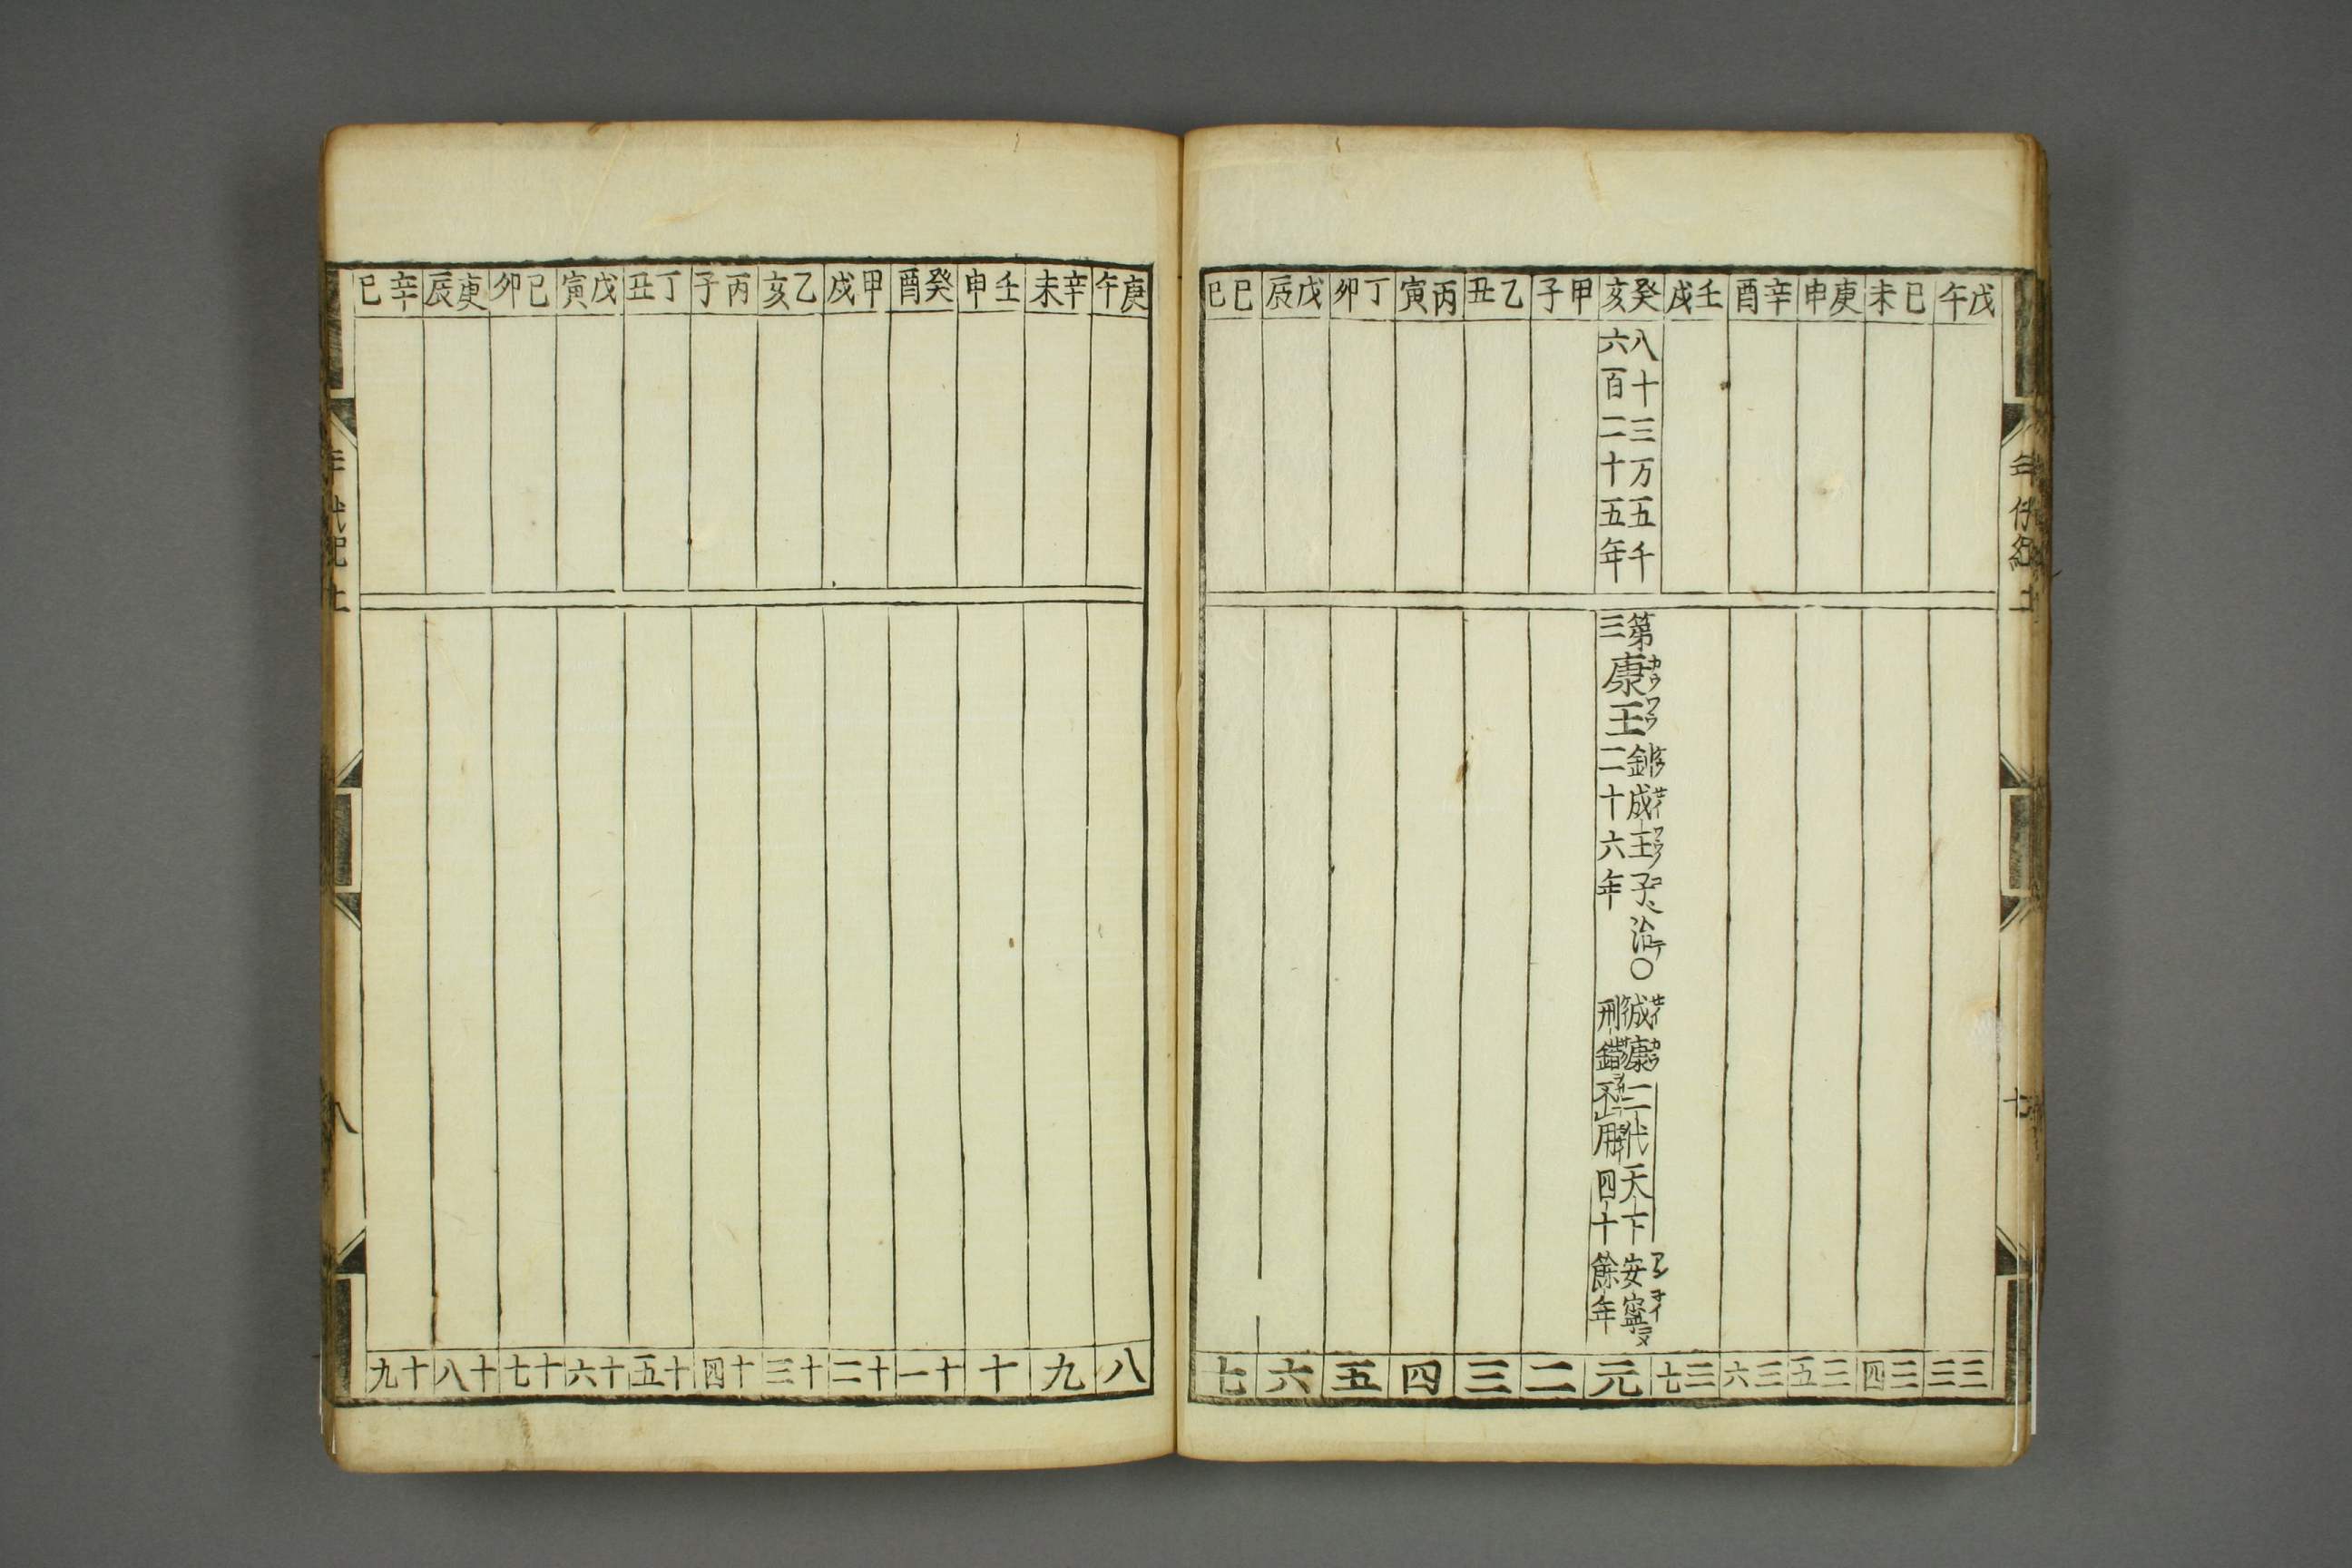 年代紀上
七
戊午
己未
庚申
辛酉
壬戌
癸亥
甲子
乙丑
丙寅
丁卯
戊辰
己巳
八十三万五千
六百二十五年
第三
康王
カウワウ
釗成王子治○
二十六年
成康二代天下安寧
刑錯不用四十餘年
三三
三四
三五
三六
三七
元
二
三
四
五
六
七
庚午
辛未
壬申
癸酉
甲戌
乙亥
丙子
丁丑
戊寅
己卯
庚辰
辛巳
八
九
十
十一
十二
十三
十四
十五
十六
十七
十八
十九
年代紀上
八